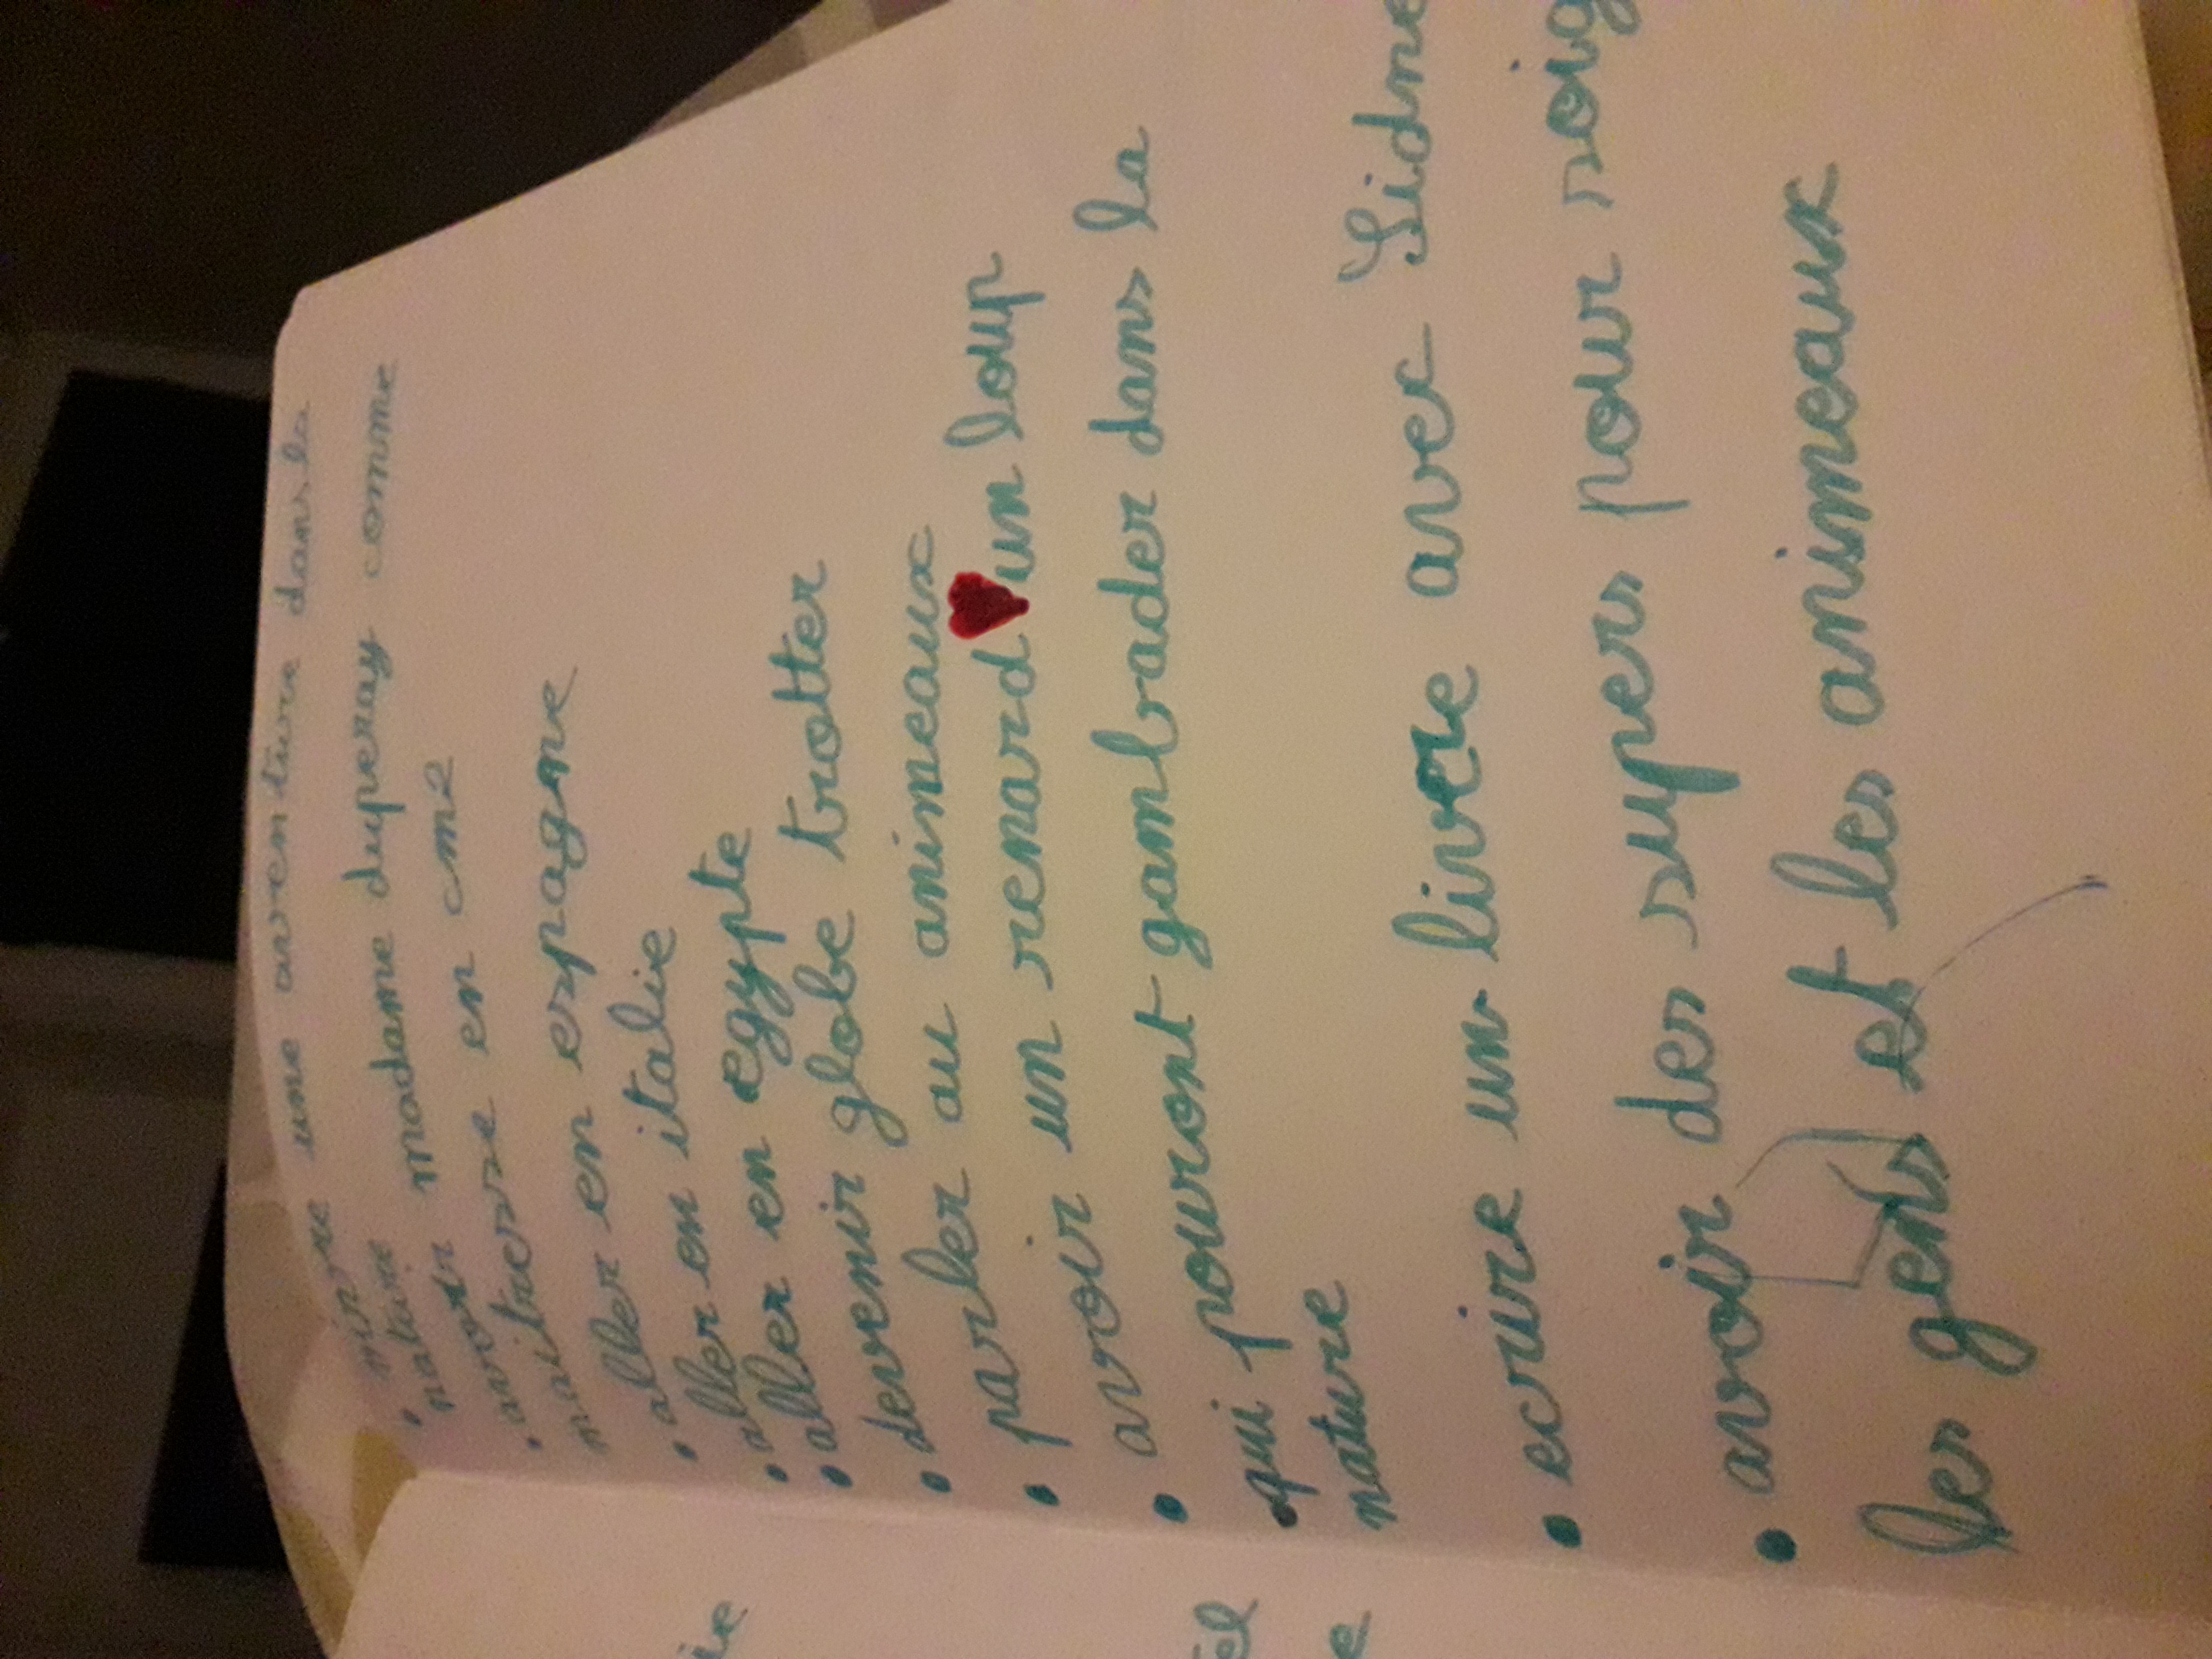 vivre une aventure dans la
nature
avoir madame duperay comme
maitresse en cm2
aller en espagne
aller en italie
aller en egypte
devenir globe trotter
parler au animeaux
avoir un renard un loup
qui pouront gambader dans la
nature
ecrire un livre avec Sidne
avoir des supers pour soig
les gens et les animeaux
ie
el
e